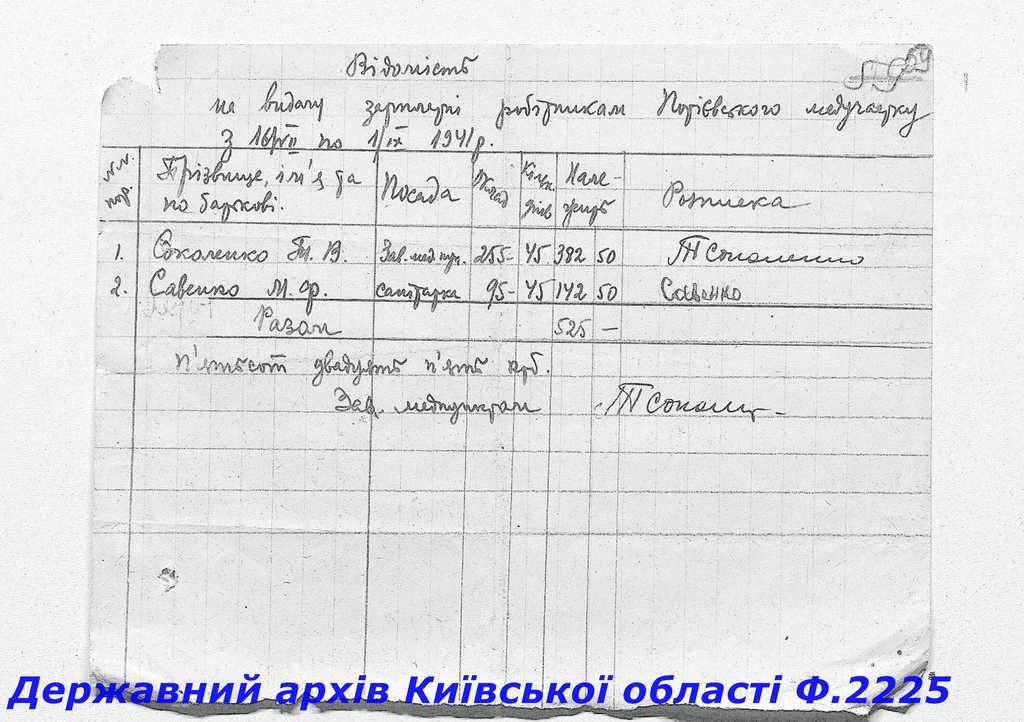 Відомість
на видачу зарплатні робітникам Потієвського медучастку
з 16/VII по 1/IX 1941 р.
N.N. пор. Прізвище, ім'я та по батькові. Посада Оклад Кільк. днів Нале-жить Розписка
1. Соколенко Т. В. Зав. мед пун. 255- 45 382 50 ТСоколенко
2. Савенко М. Ф. санітарка 95- 45 142 50 Савенко
Разом 525 —
п'ятьсот двадцять п'ять крб.
Зав. медпунктом
Державний архів Київської області Ф.2225